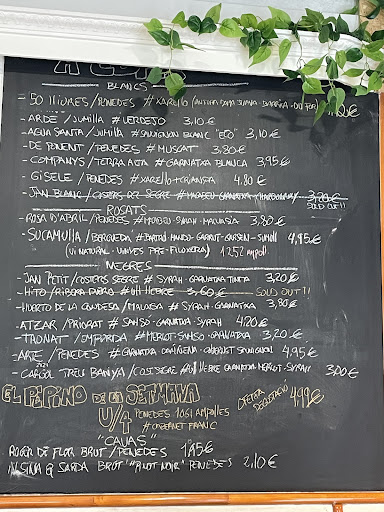 BLANCS
- 50 LLIURES / PENEDES # XAREL·LO
- ARDE / JUMILLA # VERDEJO 3,10€
- AGUA SANTA / JUMILLA # SAUVIGNON BLANC "ECO" 3,10€
- DE PONENT / PENEDES # MUSCAT 3,80€
- COMPANYS / TERRA ALTA # GARNATXA BLANCA 3,95€
- GISELE / PENEDES # XAREL·LO 4,80€
- JAN BLANC / COSTERS DEL SEGRE # MACABEU GARNATXA CHARDONNAY 3,20€
SOLD OUT!!
ROSATS
- ROSA D'ABRIL / PENEDES # MACABEU-SYRAH-MALVASIA 3,80€
- SUCAMULLA / BERGUEDÀ # GARRUT 4,95€
(VI NATURAL - VINYES PRE-FILOXERA) 1252 AMPOLL.
NEGRES
- JAN PETIT / COSTERS SEGRE # SYRAH-GARNATXA TINTA 3,20€
- HITO / RIBERA DUERO 3,60€ SOLD OUT!!
- HUERTO DE LA CONDESA / MALLORCA # SYRAH-GARNATXA 3,80€
- ATZAR / PRIORAT # SANSÓ-GARNATXA-SYRAH 4,20€
- TRONAT / EMPORDÀ # MERLOT-SANSÓ-GARNATXA 3,20€
- ARTE / PENEDES # GARNATXA CARIÑENA-CABERNET SAUVIGNON 4,95€
- CARGOL TREU BANYA / COST. SEGRE # GARNATXA MERLOT-SYRAH 3,00€
EL PEPINO DE LA SETMANA
U/4 PENEDES 1061 AMPOLLES
# CABERNET FRANC
OFERTA DEGUSTACIÓ 4,99€
"CAVAS"
ROGER DE FLOR BRUT / PENEDES 1,85€
ALSINA & SARDA BRUT "PINOT NOIR" PENEDES 2,10€